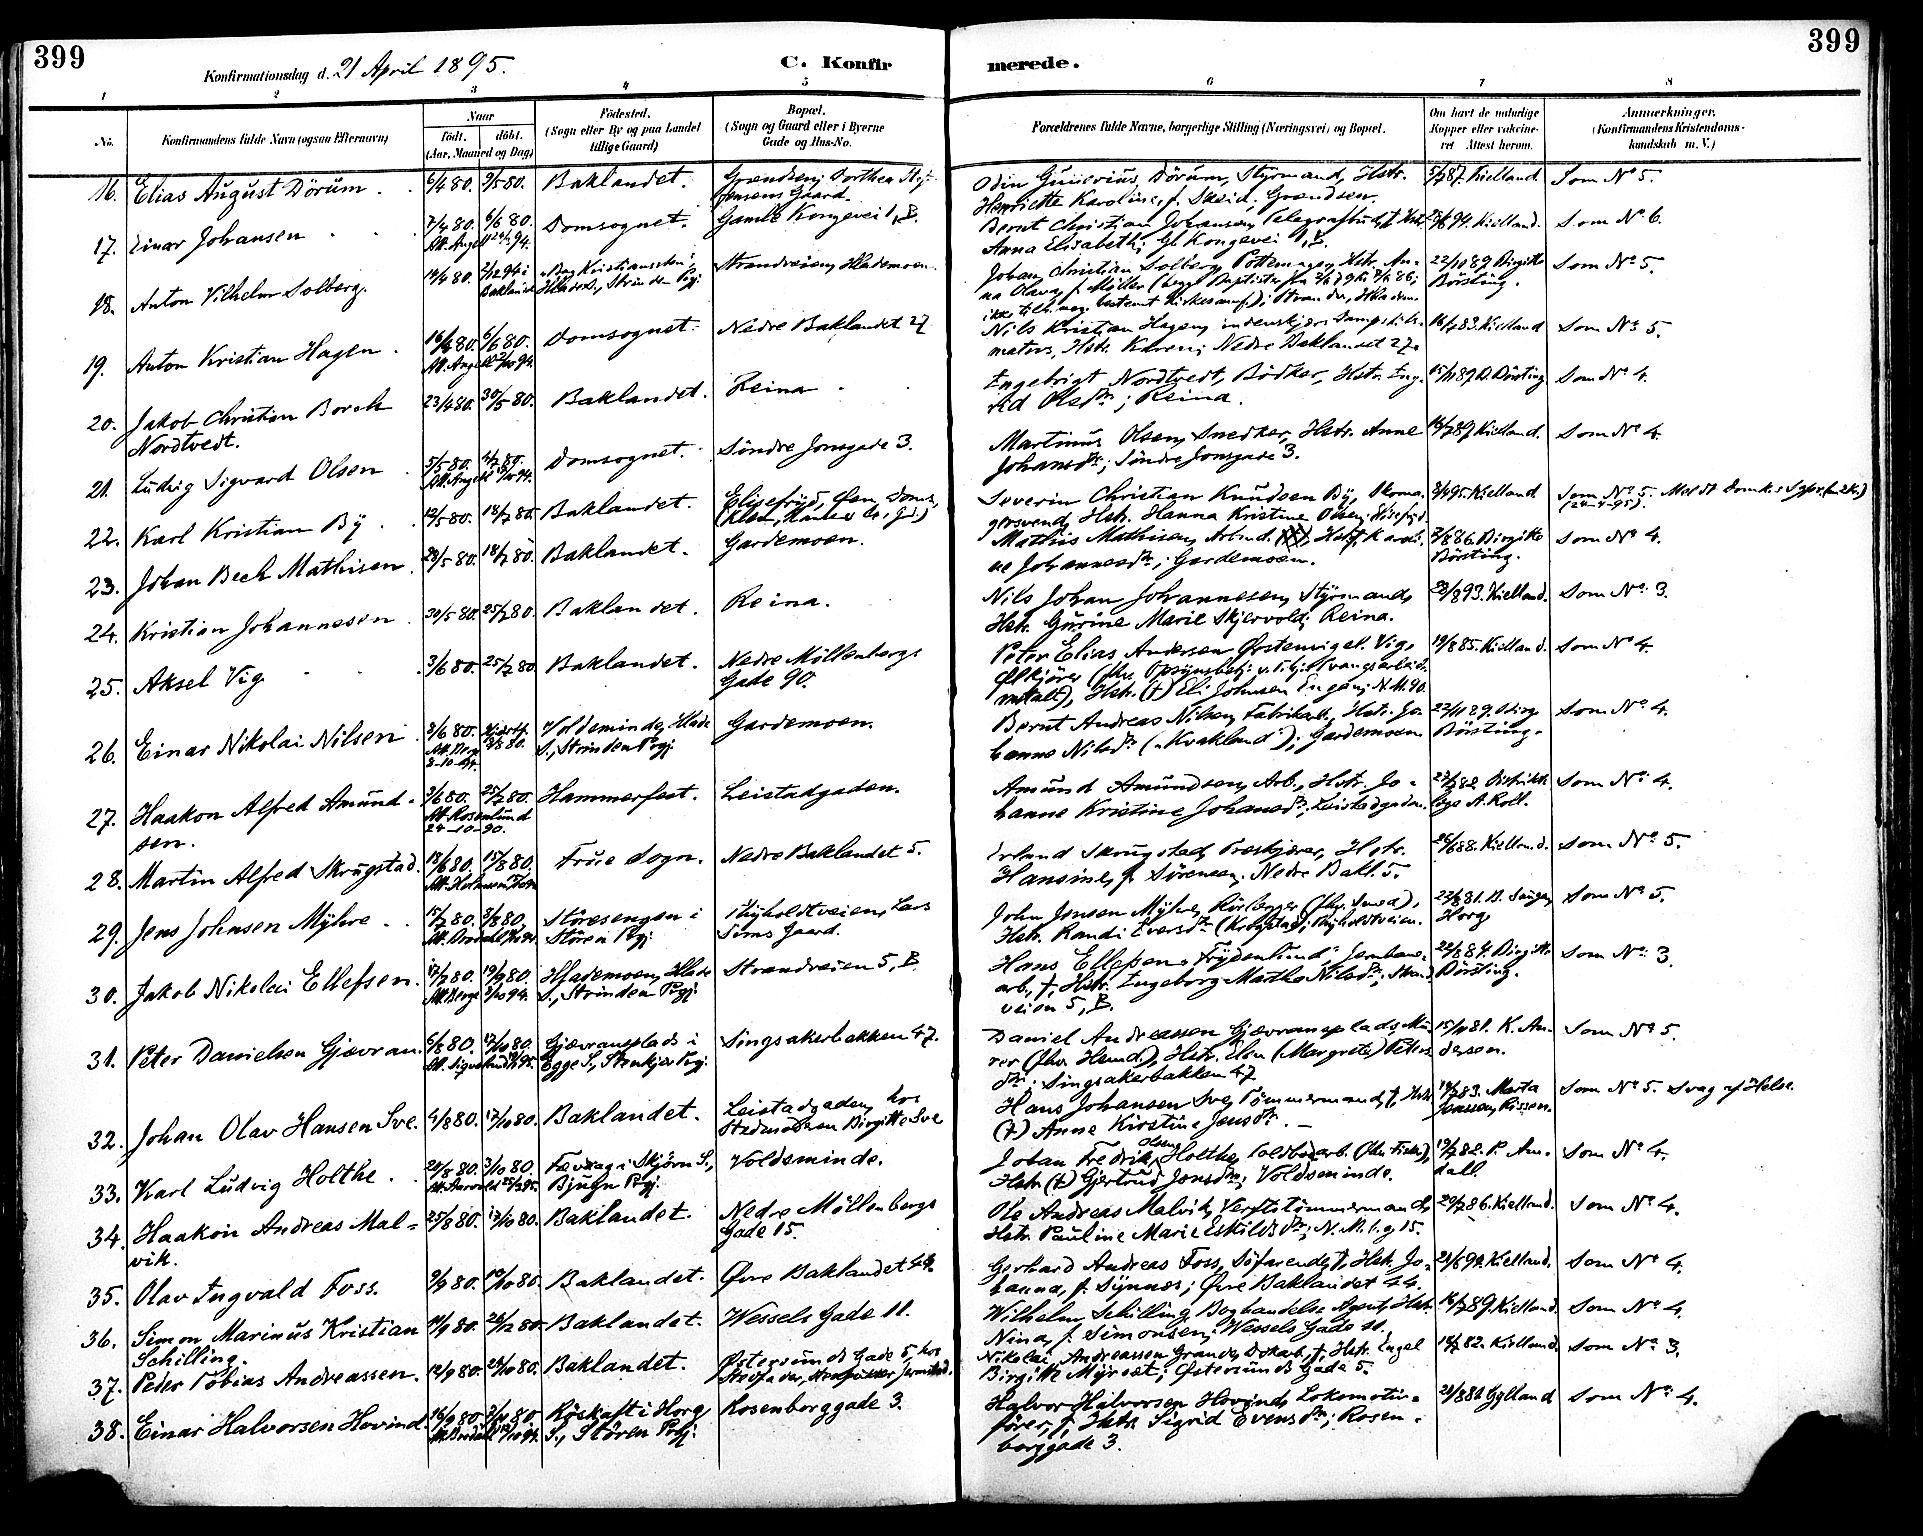 399
399
Konfirmationsdag d. 21 April 1895.
C. Konfir
merede.
1 2 3 4 5 6 7 8
No. Konfirmandens fulde Navn (ogsaa Efternavn)
Naar
født. døbt.
(Aar, Maaned og Dag)
Fødested.
(Sogn eller By og paa Landet
tillige Gaard)
Bopæl.
(Sogn og Gaard eller i Byerne
Gade og Hus-No.
Forældrenes fulde Navne, borgerlige Stilling (Næringsvei) og Bopæl.
Om havt de naturlige
Kopper eller vakcine-
ret Attest herom.
Anmærkninger.
(Konfirmandens Kristendoms-
kundskab m. V.)
16. Elias August Dörum 6/4 80. 9/5 80. Baklandet. Grændsen; Dorthea
Gaard.
Odin Gunerius Dörum, Styrmand, Hstr.
Henriette Karoline, f. Skeid; Grændsen.
87. Kielland Som No 5.
17. Einar Johansen 7/4 80. 6/6 80. Domsognet. Gamle Kongevei 1, B.
Att. Angell 94.
Bernt Christian Johansen, Telegrafbud, Hstr.
Anna Elisabeth; Gl. Kongevei 1, B.
94. Kielland. Som No 6.
18. Anton Vilhelm Solberg. 19/4 80. 94 i
Baklandet
Bag Kristianssten i
Hlade S., Strinden Pgj. Strandveien, Hlademoen.
Johan Christian Solberg, Pottemager, Hstr. An-
na Olava, f. Møller (begge Baptister fra
ikke tilh. nog. bestemt Kirkesamf.);
22/11 89 Birgitte
Börsting. Som No 5.
19. Anton Kristian Hagen 16/4 80. 6/6 80. Domsognet. Nedre Baklandet 27
Att. Angell 94.
Nils Kristian Hagen,
Hstr. Karen; Nedre Baklandet 27.
83. Kielland Som No 5.
20. Jakob Christian Borch
Nordtvedt. 23/4 80. 30/5 80. Baklandet. Reina
Engebrigt Nordtvedt, Bödker, Hstr. Ing-
rid Olsdtr; Reina.
15/11 89. B. Börsting Som No 4.
21. Ludvig Sigvard Olsen 5/5 80. 4/7 80. Domsognet. Söndre Jonsgade 3.
Att. Angell 94.
Martinus Olsen, Snedker, Hstr. Anne
Johansdtr; Söndre Jonsgade 3.
89 Kielland. Som No 4.
22. Karl Kristian By 12/5 80. 18/7 80. Baklandet. Elisefryd,
Severin Christian Knudsen By, Skoma-
gersvend, Hstr. Hanna Kristine Olsen; Elisefryd
95. Kielland Som No 5.
23. Johan Bech Mathisen 23/5 80. 18/7 80. Baklandet. Gardemoen.
Mathis Mathisen, Arbmd. Hstr. Karoli-
ne Johannesdtr; Gardemoen.
7/8 86. Birgitte
Börsting. Som No 4.
24. Kristian Johannesen 30/5 80. 25/7 80. Baklandet. Reina.
Nils Johan Johannesen, Styrmand,
Hstr. Gurine Marie Skjervold; Reina.
23/8 93. Kielland. Som No 3.
25. Aksel Vig 3/6 80. 25/7 80. Baklandet. Nedre Möllenbergs
Gade 90.
Peter Elias Andersen Østenviget Vig,
Hstr. (†) Eli Johnsen Engan; N. M. 90.
19/8 85. Kielland. Som No 4.
26. Einar Nikolai Nilsen 3/6 80. Hjemd.
8 80.
Att. Berg
8-10-94.
Voldsminde, Hlade
S., Strinden Pgj. Gardemoen.
Bernt Andreas Nilsen, Fabrikarb., Hstr. Jo-
hanne Nilsdtr ("Kvakland"); Gardemoen
22/11 89.
Börsting. Som No 4.
27. Haakon Alfred Amund-
sen. 3/6 80. 25/7 80. Hammerfest. Leistadgaden.
Att. Rosenlund
24-10-90.
Amund Amundsen, Arb., Hstr. Jo-
hanne Kristine Johansdtr; Leistadgaden.
82. Distrikts
læge A. Roll. Som No 4.
28. Martin Alfred Skrugstad. 18/6 80. 15/8 80. Frue Sogn. Nedre Baklandet 5.
Erland Skrugstad, Hstr.
Hansine, f. Sörensen; Nedre Bakl. 5.
88. Kielland. Som No 5.
29. Jens Johnsen Myhre 80. 80. Störesengen i
Stören Pgj. Thyholdtveien, Lars
Gaard.
John Jensen Myhre, (fhv. Smed),
Hstr. Randi Iversdtr Thyholdtveien.
81.
Horg Som No 5.
30. Jakob Nikolai Ellefsen. 17/7 80. 19/9 80. Hlademoen, Hlade
S., Strinden Pgj. Strandveien 5, B.
Att. Berge 94.
Hans Ellefsen Frydenlund, Jernbane-
arb., †, Hstr. Ingeborg Martha Nilsdtr; Strand
veien 5, B.
84. Birgitte
Börsting. Som No 3.
31. Peter Danielsen Gjævran. 6/8 80. 17/10 80. Gjævransplads i
Egge S., Stenkjær Pgj. Singsakerbakken 47.
Daniel Andreassen Gjævransplads, Mu-
rer (fhv. Husmd.), Hstr. Elen (Margrete) Peters
dtr; Singsakerbakken 47
15/11 81. K. An-
dersen. Som No 5.
32. Johan Olav Hansen Sve. 4/8 80. 17/10 80. Baklandet. Leistadgaden, hos
Stedmoderen Birgitte Sve
Hans Johansen Sve, Tömmermand, †, Hstr.
(†) Anne Kirstine Jensdtr.
83. Marta
Jenssen, Rissen. Som No 5. Svag af Helse.
33. Karl Ludvig Holthe 80. 3/10 80. i Skjörn S.,
Bjugn Pgj. Voldsminde.
Johan Fredrik Olsen Holthe,
Hstr. (†) Gjertrud Jensdtr; Voldsminde.
82. P. Am-
dall. Som No 4.
34. Haakon Andreas Mal-
vik. 25/8 80. 17/10 80. Baklandet. Nedre Möllenbergs
Gade 15.
Ole Andreas Malvik, Verftstömmermand,
Hstr. Pauline Marie Eskildsdtr; N. M. b. g 15.
86. Kielland. Som No 4.
35. Olav Ingvald Foss. 9/9 80. 10/10 80. Baklandet. Øvre Baklandet 44.
Gerhard Andreas Foss, Söfarende, †, Hstr. Jo-
hanna, f. Synnes; Øvre Baklandet 44.
Kielland. Som No 4.
36. Simon Marinus Kristian
Schilling. 11/9 80. 26/12 80. Baklandet. Wessels Gade 11.
Wilhelm Schilling, Boghandels Agent, Hstr.
Nina, f. Simonsen; Wessels Gade 11.
89 Kielland. Som No 4.
37. Peter Tobias Andreassen. 12/9 80. 24/10 80. Baklandet. Østersunds Gade 5, hos
Nikolai Andreassen Grande, †, Hstr. Engel
Birgitte Myrset; Østersunds Gade 5.
82. Kielland. Som No 3.
38. Einar Halvorsen Hovind. 16/9 80. 80. Röskaft i Horg
S., Stören Pgj. Rosenborggade 3.
Halvor Halvorsen Hovind, Lokomotiv-
förer, †, Hstr. Sigrid Evensdtr; Rosen-
borggade 3.
23/8 81. Gylland Som No 4.